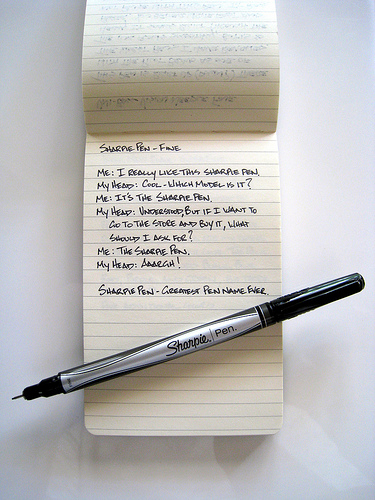 Sharpie Pen - Fine
Me: I really like this Sharpie Pen.
My Head: Cool - Which model is it?
Me: It's the Sharpie Pen.
My Head: Understood, but if I want to
go to the store and buy it, what
should I ask for?
Me: The Sharpie Pen.
My Head: Aaargh!
Sharpie Pen - Greatest Pen Name Ever.
Sharpie. Pen.